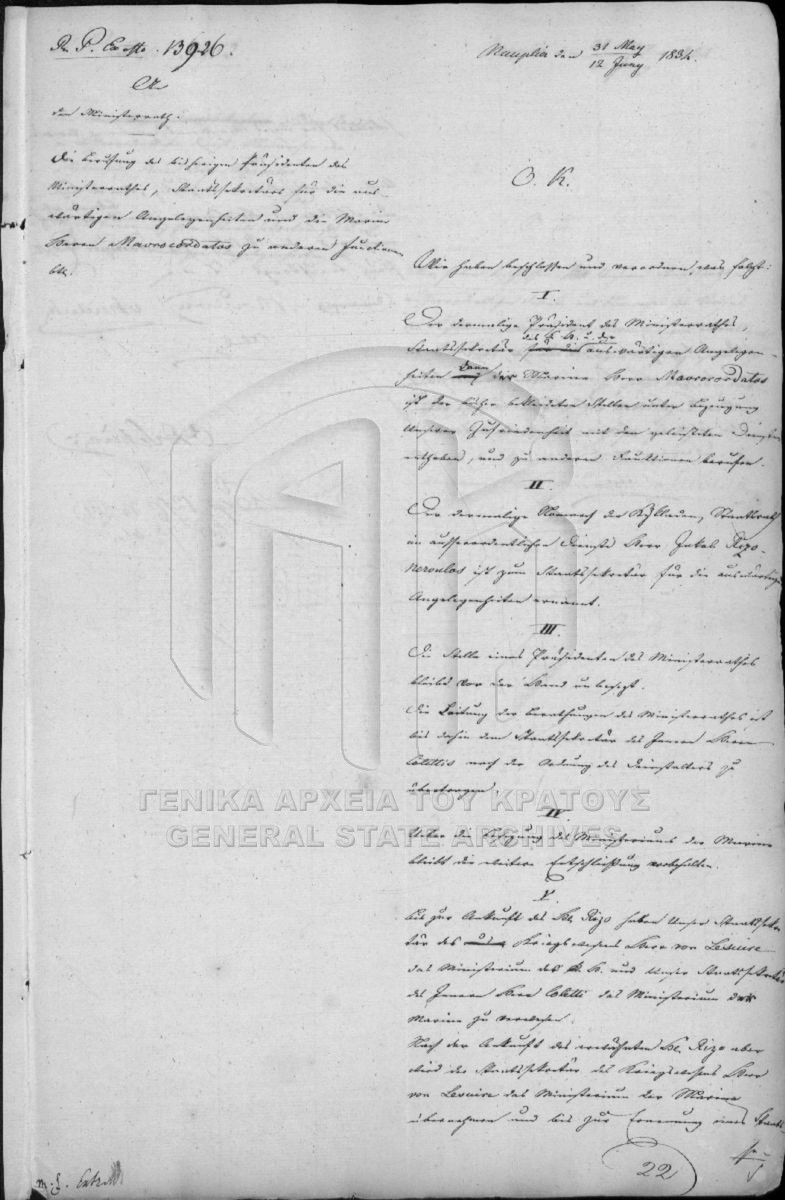 13926.
An
den Ministerrath.
Die Berufung des bisherigen Präsidenten des
Ministerrathes, Staatssekretärs für die aus-
wärtigen Angelegenheiten und die Marine
Herrn Mavrocordatos zu anderen Functionen
btr.
Nauplia den 31 May / 12 Juny 1834.
O. K.
Wir haben beschlossen und verordnen, was folgt:
I.
Der dermalige Präsident des Ministerrathes,
des K. H. u. der
Staatssekretär für die auswärtigen Angelegen-
heiten dann der Marine Herr Mavrocordatos
ist der bisher bekleideten Stellen unter Bezeugung
Unserer Zufriedenheit mit den geleisteten Diensten
enthoben, und zu anderen Funktionen berufen.
II.
Der dermalige Nomarch der Kykladen, Staatsrath
im ausserordentlichen Dienste Herr Jakob Rizo-
Neroulos ist zum Staatssekretär für die auswärtigen
Angelegenheiten ernannt.
III.
Die Stelle eines Präsidenten des Ministerrathes
bleibt vor der Hand unbesezt.
Die Leitung der Berathungen des Ministerrathes ist
bis dahin dem Staatssekretär des Innern Herrn
Colettis nach der Ordnung des Dienstalters zu
übertragen.
IV.
Ueber die Besezung des Ministeriums der Marine
bleibt die weitere Entschließung vorbehalten.
V.
Bis zur Ankunft des H. Rizo haben Unser Staatssekre-
tär des Kriegswesens Herr von Lesuire
das Ministerium des K. H. und Unser Staatssekretär
des Innern Herr Coletti das Ministerium der
Marine zu verwesen.
Nach der Ankunft des erwähnten H. Rizo aber
wird der Staatssekretär des Kriegswesens Herr
von Lesuire das Ministerium der Marine
übernehmen und bis zur Ernennung eines Staats-
22
ΓΕΝΙΚΑ ΑΡΧΕΙΑ ΤΟΥ ΚΡΑΤΟΥΣ
GENERAL STATE ARCHIVES